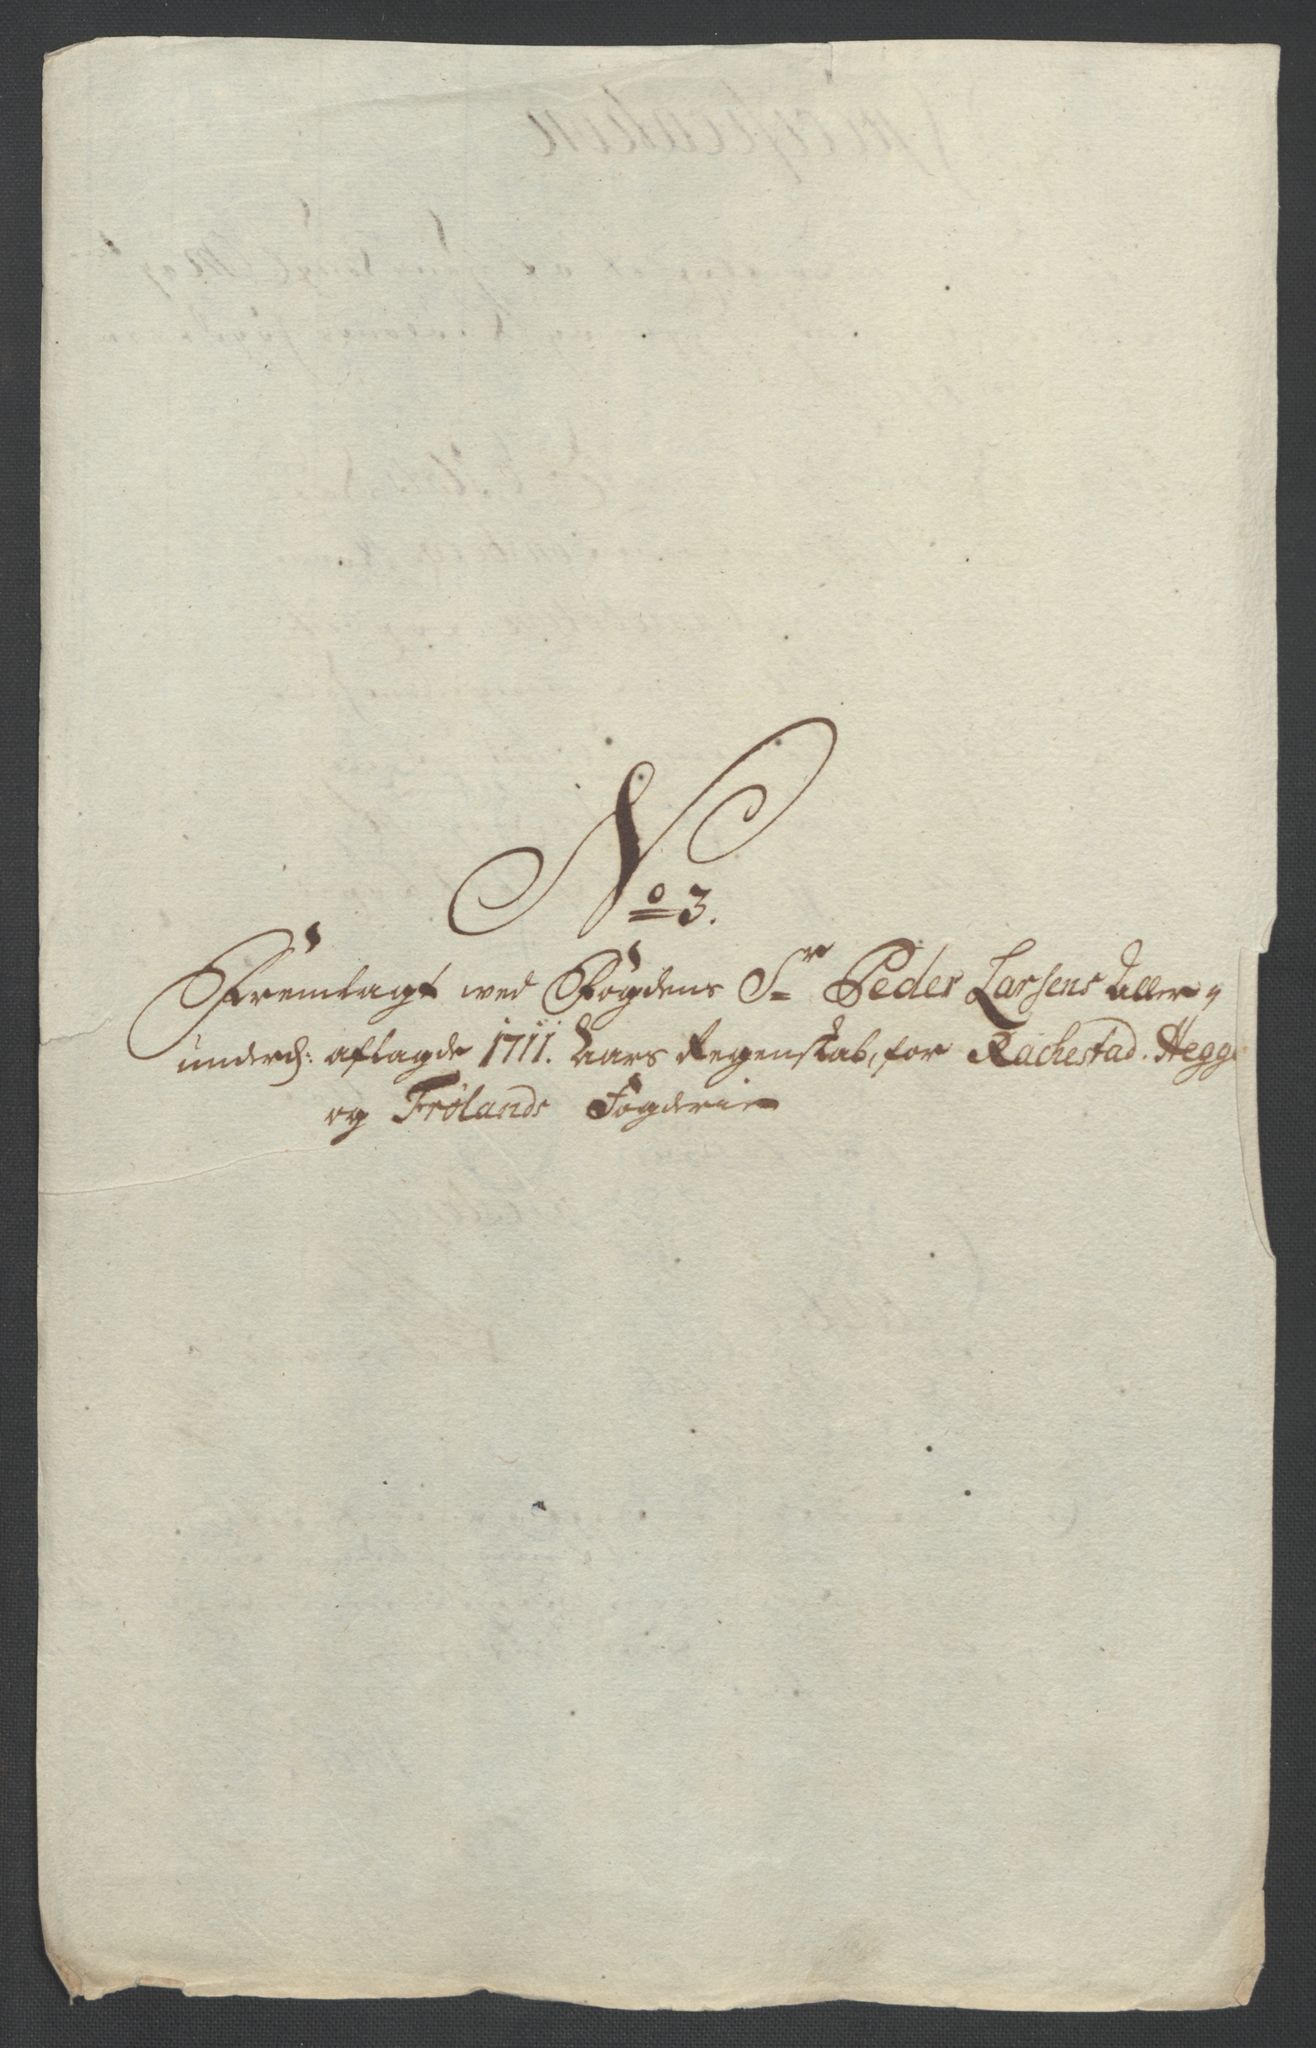 No 3.
Fremlagt wed Fogdens Sr Peder Larsens Aller
underd: aflagde 1711. Aars Regenskab, for Rachestad. Hegge
og Frølands Fogderie